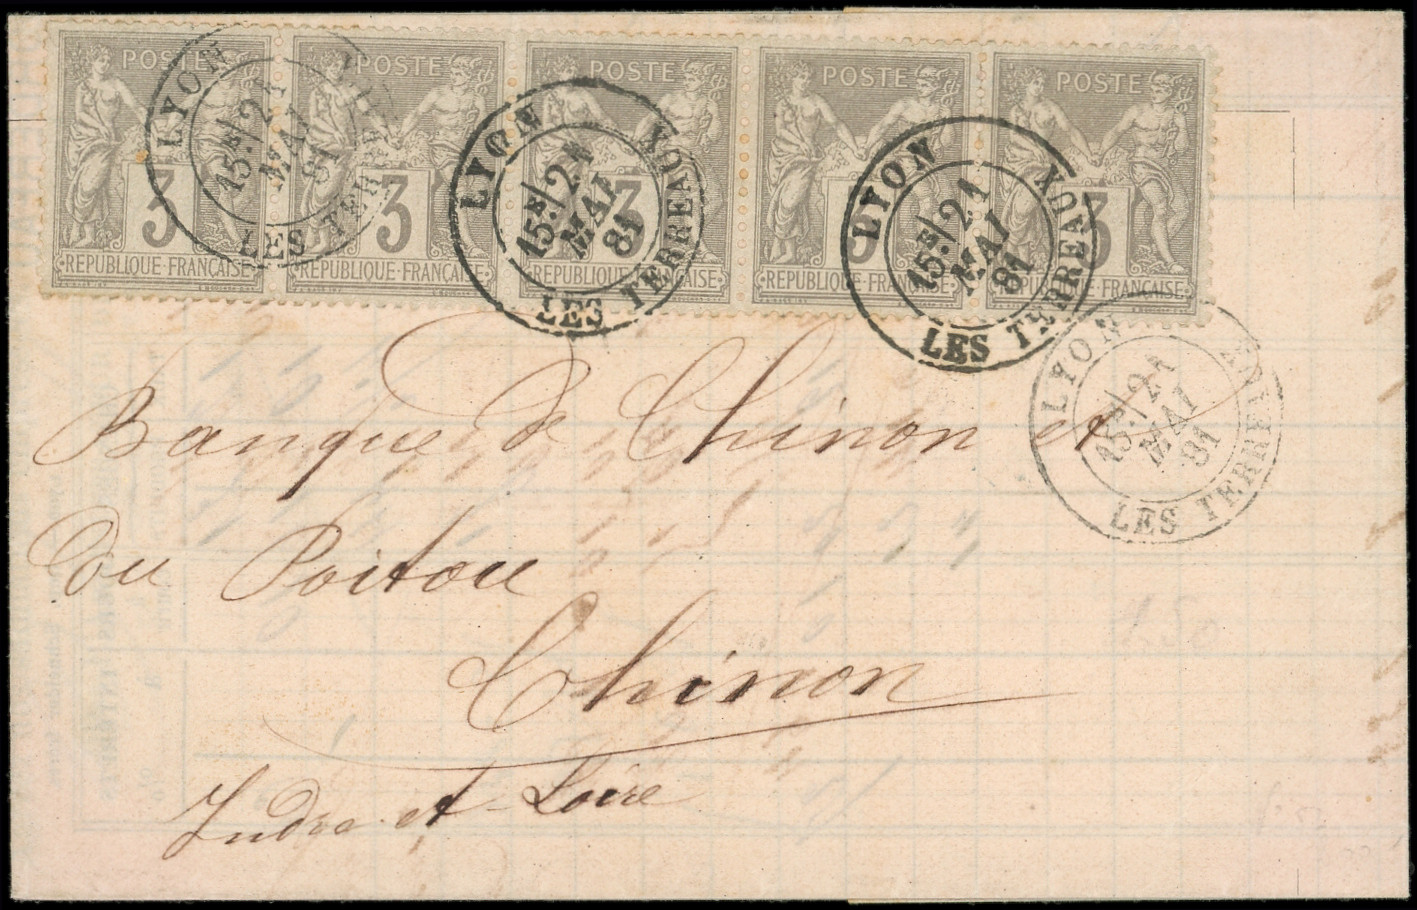 POSTE POSTE POSTE POSTE POSTE
3 3 3 3 3
REPUBLIQUE·FRANÇAISE REPUBLIQUE·FRANÇAISE REPUBLIQUE·FRANÇAISE REPUBLIQUE·FRANÇAISE REPUBLIQUE·FRANÇAISE
LYON LES TERREAUX
15E/21
MAI
81
LYON LES TERREAUX
15E/21
MAI
81
LYON LES TERREAUX
15E/21
MAI
81
LYON LES TERREAUX
15E/21
MAI
81
Banque de Chinon et
du Poitou
Chinon
Indre et Loire